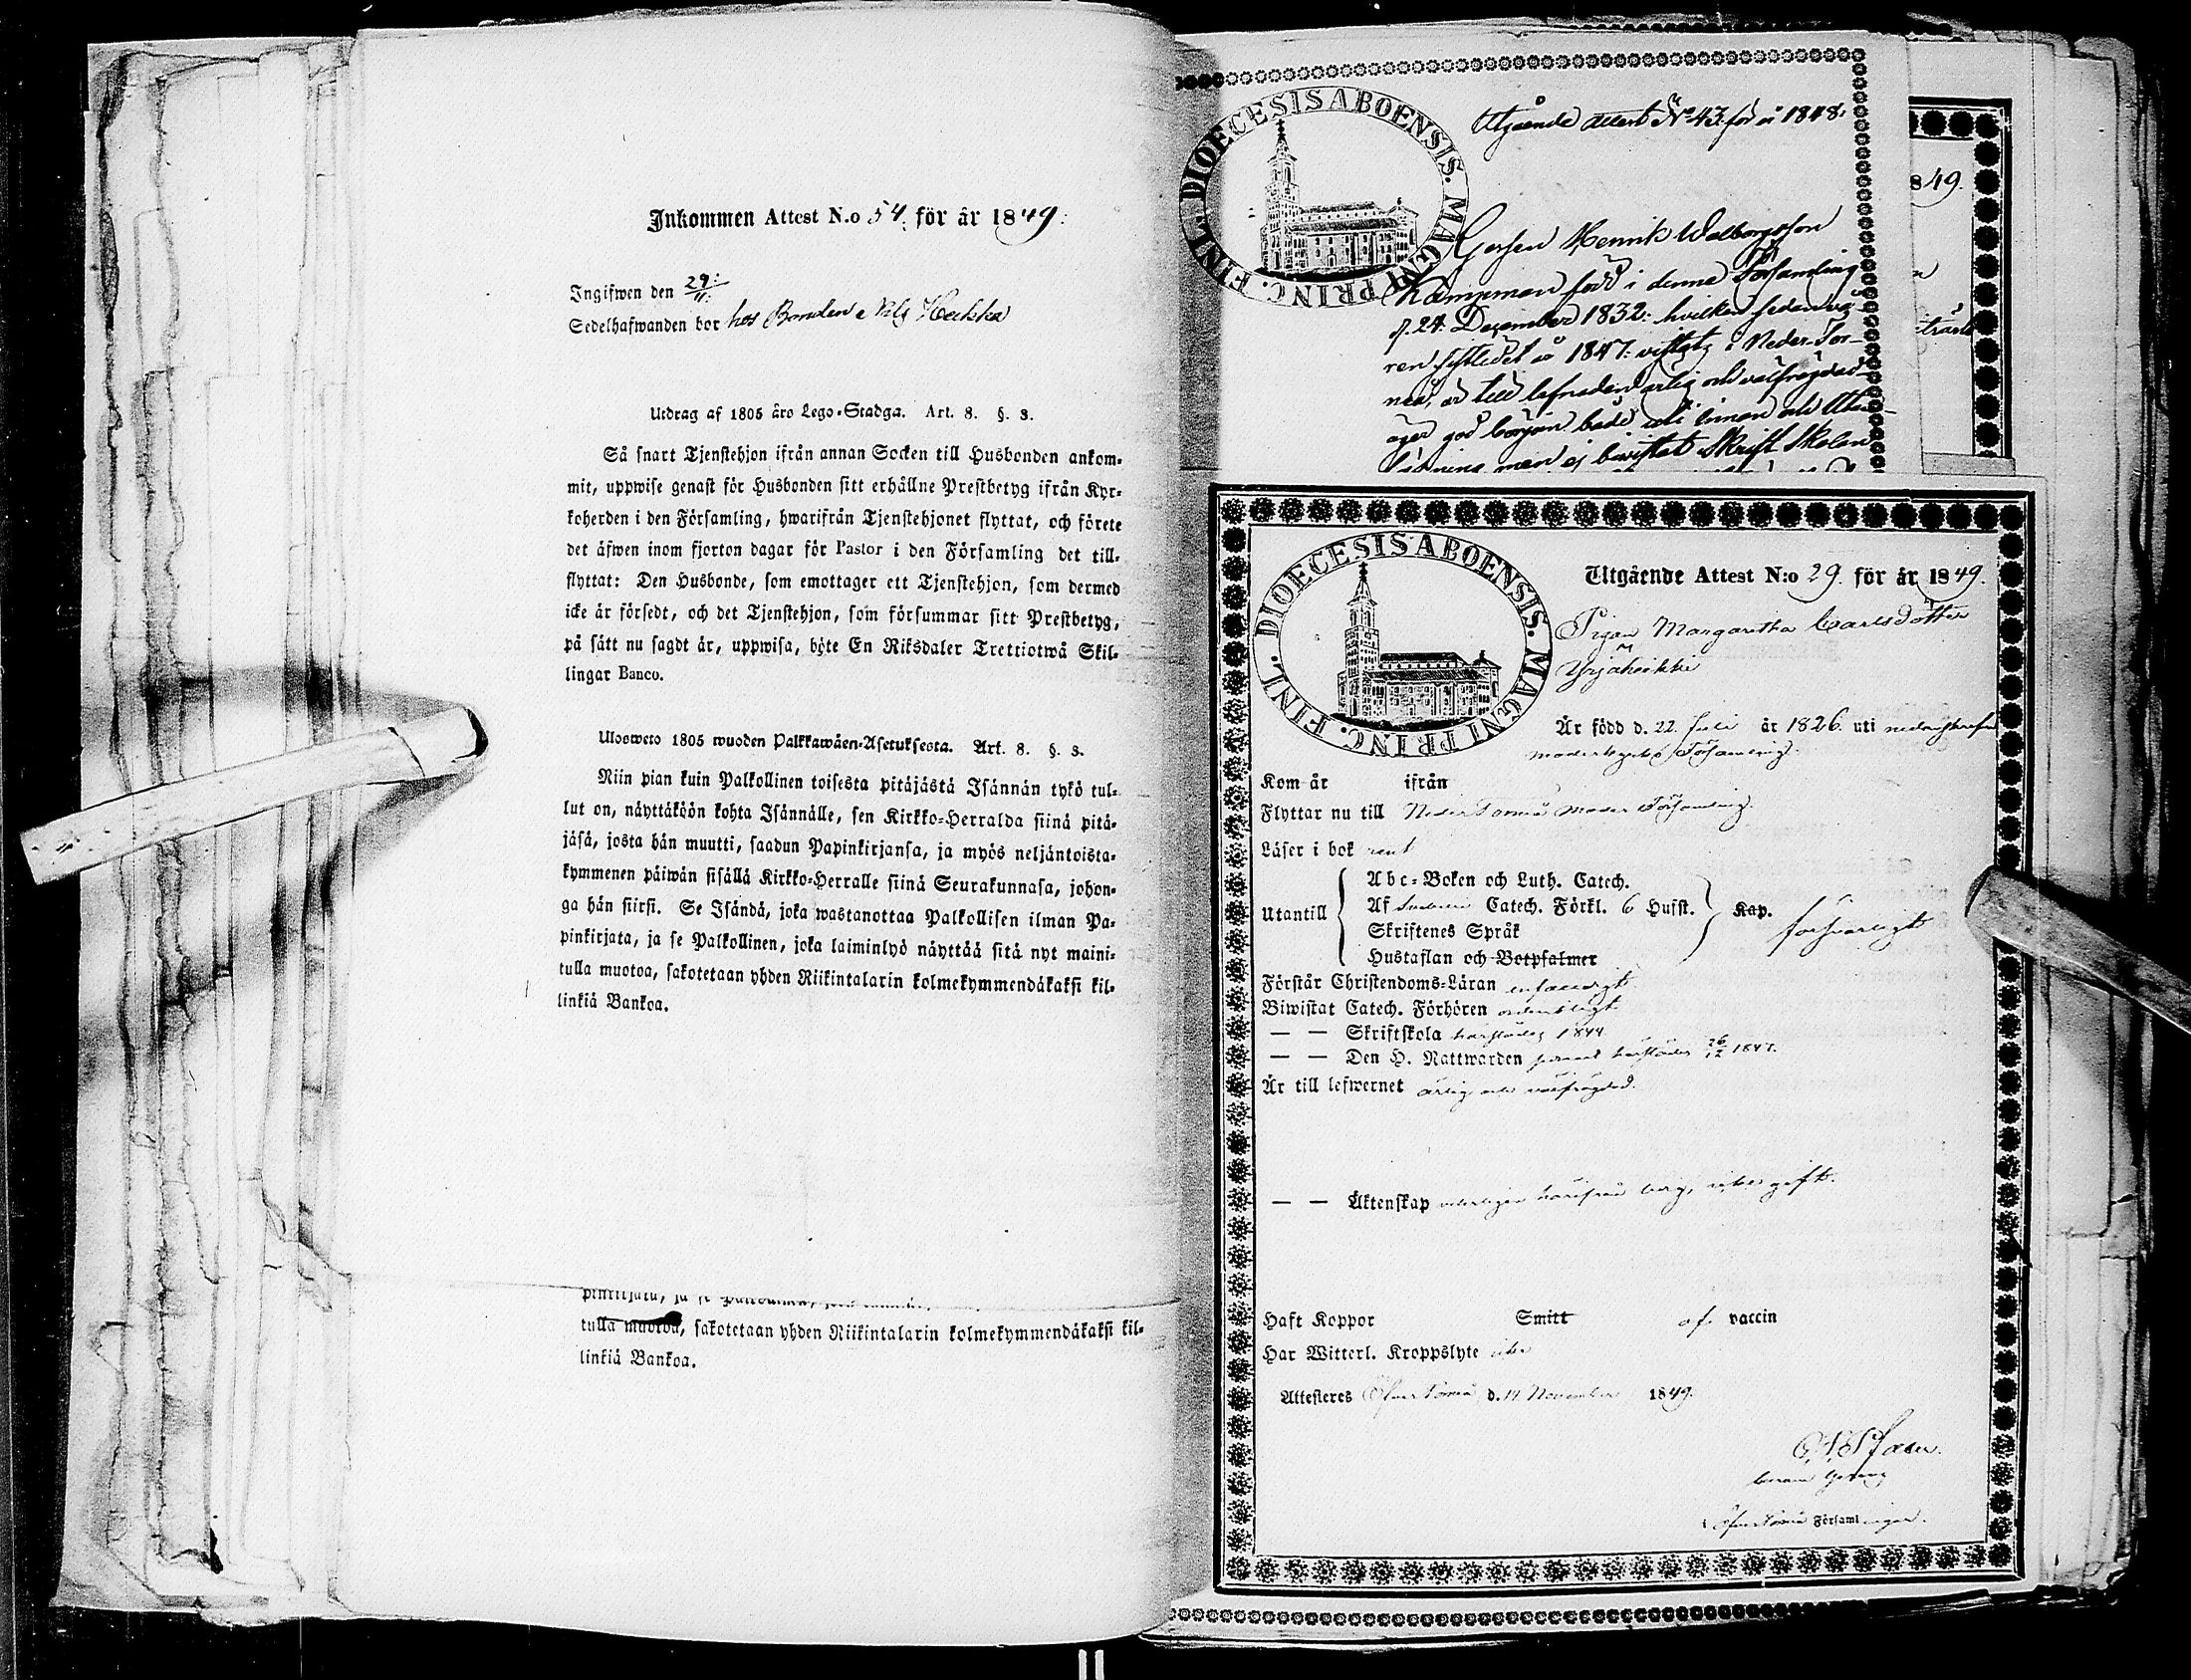 Inkommen Attest N.o 54. för år 1849.
Ingifwen den 29/11.
Sedelhafwanden bor hos Bonden Nils Heikka
Utdrag af 1805 års Lego-Stadga. Art. 8. §. 3.
Så snart Tjenstehjon ifrån annan Socken till Husbonden ankom-
mit, uppwise genast för Husbonden sitt erhållne Prestbetyg ifrån Kyr-
koherden i den Församling, hwarifrån Tjenstehjonet flyttat, och förete
det äfwen inom fjorton dagar för Pastor i den Församling det till-
flyttat: Den Husbonde, som emottager ett Tjenstehjon, som dermed
icke är försedt, och det Tjenstehjon, som försummar sitt Prestbetyg,
på sätt nu sagdt är, uppwisa, böte En Riksdaler Trettiotwå Skil-
lingar Banco.
Ulosweto 1805 wuoden Palkkawäen-Asetuksesta. Art. 8. §. 3.
Niin pian kuin Palkollinen toisesta pitäjästä Isännän tykö tul-
lut on, näyttäköön kohta Isännälle, sen Kirkko-Herralda siinä pitä-
jäsä, josta hän muutti, saadun Papinkirjansa, ja myös neljäntoista-
kymmenen päiwän sisällä Kirkko-Herralle siinä Seurakunnasa, johon-
ga hän siirsi. Se Isändä, joka wastanottaa Palkollisen ilman Pa-
pinkirjata, ja se Palkollinen, joka laiminlyö näyttää sitä nyt maini-
tulla muotoa, sakotetaan yhden Riikintalarin kolmekymmendäkaksi kil-
linkiä Bankoa.
tulla muotoa, sakotetaan yhden Riikintalarin kolmekymmendäkaksi kil-
linkiä Bankoa.
FINL. DIOECESIS ABOENSIS. MAGNI PRINC.
Utgående attest N:o 43. för år 1848.
Gossen Henrik Walborgsson
Kämpeman född i denna Församling
d. 24. December 1832. hvilken sedan vå-
ren sistledet år 1847. vistats i Neder-Tor-
neå, är till lefnaden ärlig och välfrägdad
äger god början både uti innan och Utan-
Läsning men ej biwistat Skrift Skolan
849.
FINL. DIOECESIS ABOENSIS. MAGNI PRINC.
Utgående Attest N:o 29. för år 1849.
Pigan Margaretha Carlsdotter
Yrjäheikki
Är född d. 22. Juli år 1826. uti
Församling.
Kom år ifrån
Flyttar nu till Neder Torneå Moder Församling.
Läser i bok rent
Utantill
Abc-Boken och Luth. Catech.
Af Catech. Förkl. 6 Hufst. Kap. försvarligt
Skriftenes Språk
Hustaflan och Botpsalmer
Förstår Christendoms-Läran enfaldigt
Biwistat Catech. Förhören ordentligt
— — Skriftskola härstädes 1844.
— — Den H. Nattwarden härstädes 26/12 1847.
Är till lefwernet ärlig och välfrägdad.
— — Äktenskap
Haft Koppor Smitt af vaccin
Har Witterl. Kroppslyte icke
Attesteres Öfver Torneå d. 14 November 1849.
Öfver Torneå Församlingar.